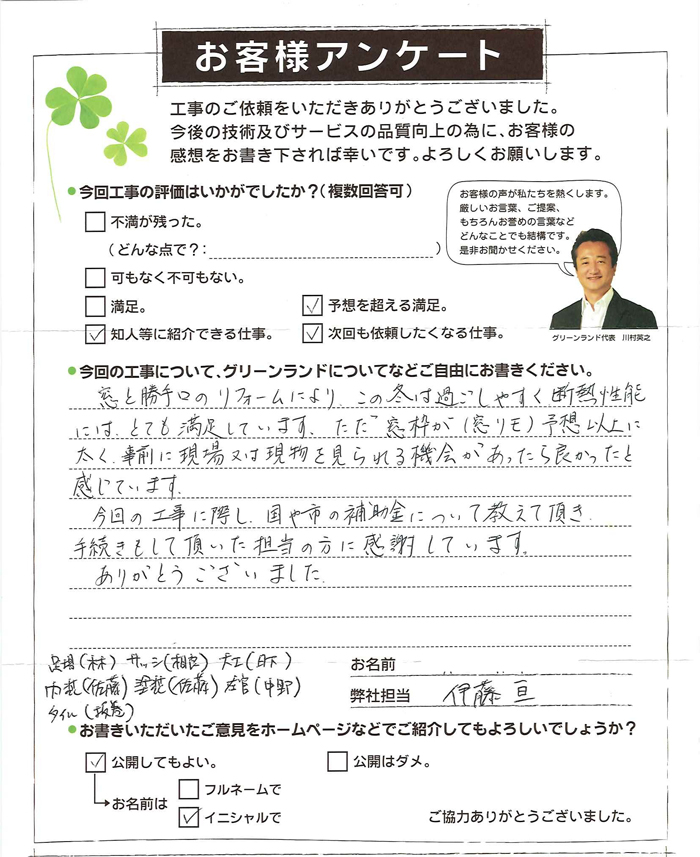 お客様アンケート
工事のご依頼をいただきありがとうございました。
今後の技術及びサービスの品質向上の為に、お客様の
感想をお書き下されば幸いです。よろしくお願いします。
●今回工事の評価はいかがでしたか?(複数回答可)
お客様の声が私たちを熱くします。
厳しいお言葉、ご提案、
もちろんお誉めの言葉など
どんなことでも結構です。
是非お聞かせください。
不満が残った。
(どんな点で?: )
可もなく不可もない。
満足。
予想を超える満足。
知人等に紹介できる仕事。
次回も依頼したくなる仕事。
グリーンランド代表 川村英之
●今回の工事について、グリーンランドについてなどご自由にお書きください。
窓と勝手口のリフォームにより、この冬は過ごしやすく断熱性能
には、とても満足しています。ただ窓枠が(窓リモ)予想以上に
太く、事前に現場又は現物を見られる機会があったら良かったと
感じています。
今回の工事に際し、国や市の補助金について教えて頂き、
手続きをして頂いた担当の方に感謝しています。
ありがとうございました。
足場(林) サッシ(相良) 大工(日下)
内装(佐藤) 塗装(佐藤) 左官(中野)
タイル(坂巻)
お名前
弊社担当 伊藤 亘
●お書きいただいたご意見をホームページなどでご紹介してもよろしいでしょうか?
公開してもよい。
公開はダメ。
お名前は
フルネームで
イニシャルで
ご協力ありがとうございました。